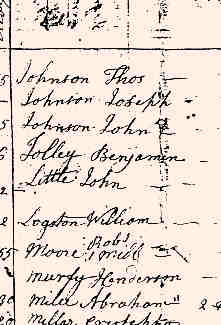 5 Johnson Thos
5 Johnson Joseph
5 Johnson John
6 Jolley Benjamin
2 Little John
2 Logston William
55 Moore Robt
Murfy Henderson
30 Miler Abraham 2
80 Millar